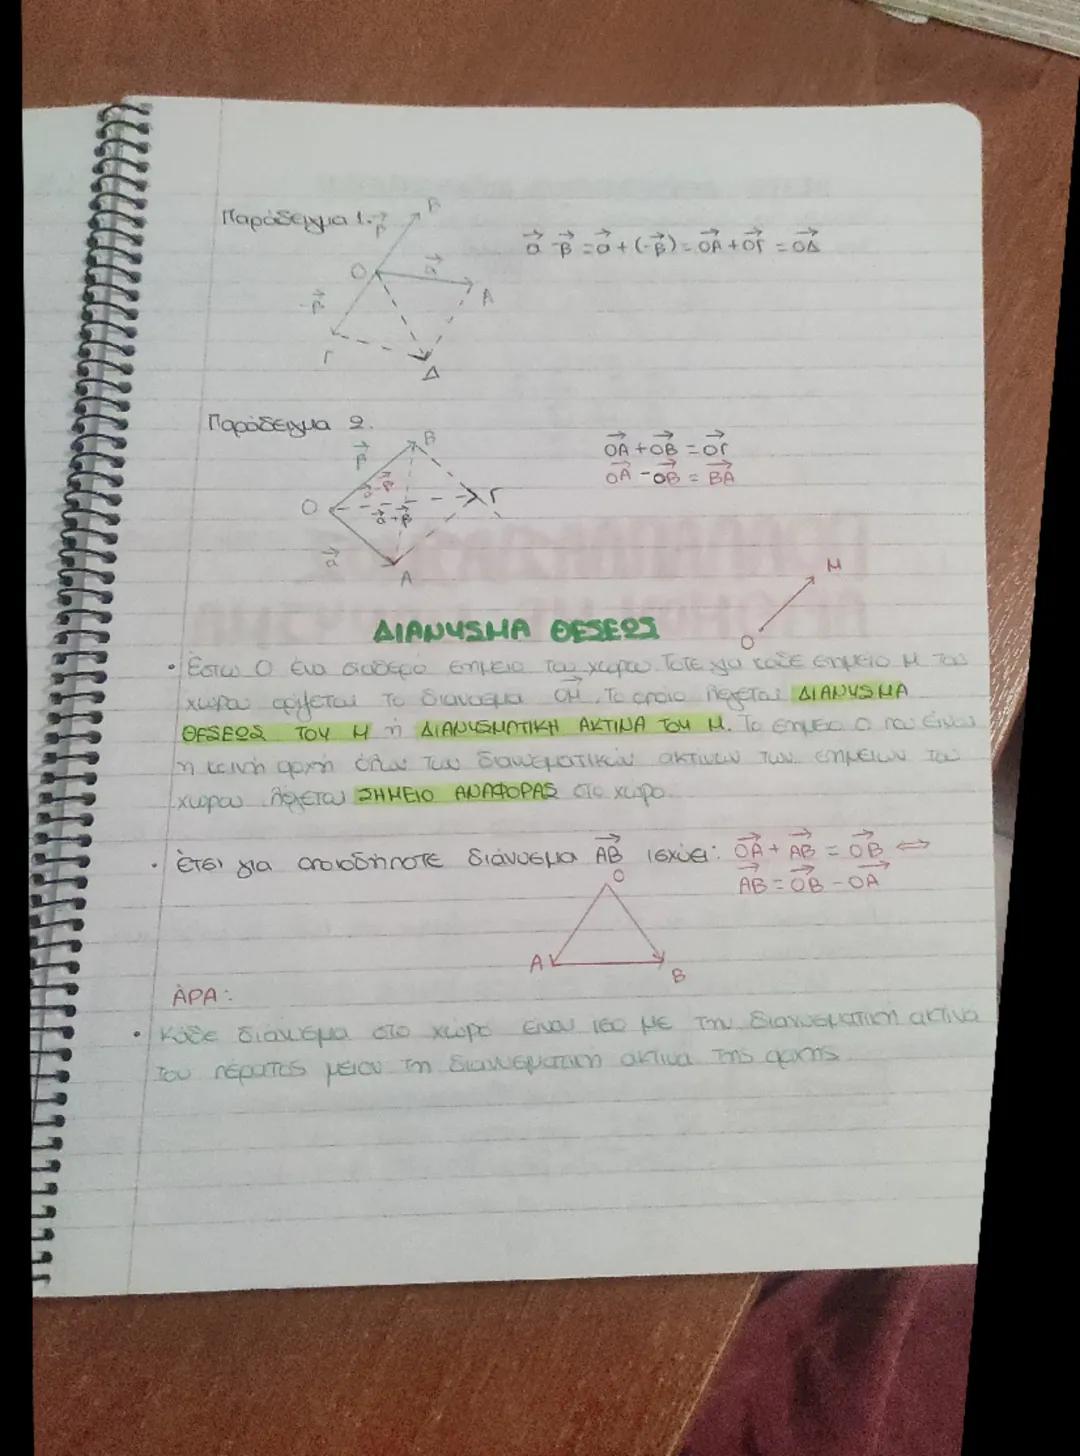 Παράδειγμα 1.
β
B
O
α
A
-β
Γ
Δ
α - β = α + (-β) = OA + OΓ = OΔ
Παράδειγμα 2.
β
B
α-β
O
α+β
Γ
α
A
OA + OB = OΓ
OA - OB = BA
M
O
ΔΙΑΝΥΣΜΑ ΘΕΣΕΩΣ
• Έστω O ένα σταθερό σημείο του χώρου. Τότε για κάθε σημείο M του
χώρου ορίζεται το διάνυσμα OM, το οποίο λέγεται ΔΙΑΝΥΣΜΑ
ΘΕΣΕΩΣ ΤΟΥ M ή ΔΙΑΝΥΣΜΑΤΙΚΗ ΑΚΤΙΝΑ ΤΟΥ M. Το σημείο O που είναι
η κοινή αρχή όλων των διανυσματικών ακτίνων των σημείων του
χώρου λέγεται ΣΗΜΕΙΟ ΑΝΑΦΟΡΑΣ στο χώρο.
• Έτσι για οποιοδήποτε διάνυσμα AB ισχύει: OA + AB = OB ⇔
AB = OB - OA
O
A
B
ΆΡΑ:
• Κάθε διάνυσμα στο χώρο είναι ίσο με την διανυσματική ακτίνα
του πέρατος μείον τη διανυσματική ακτίνα της αρχής.